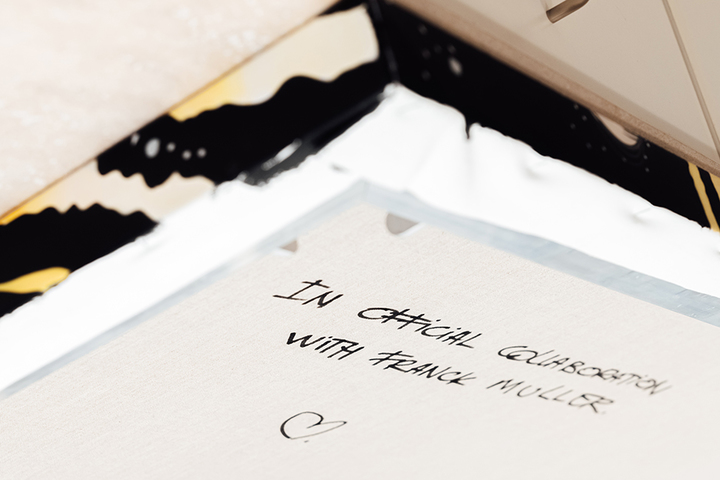 IN OFFICIAL COLLABORATION
WITH FRANCK MULLER